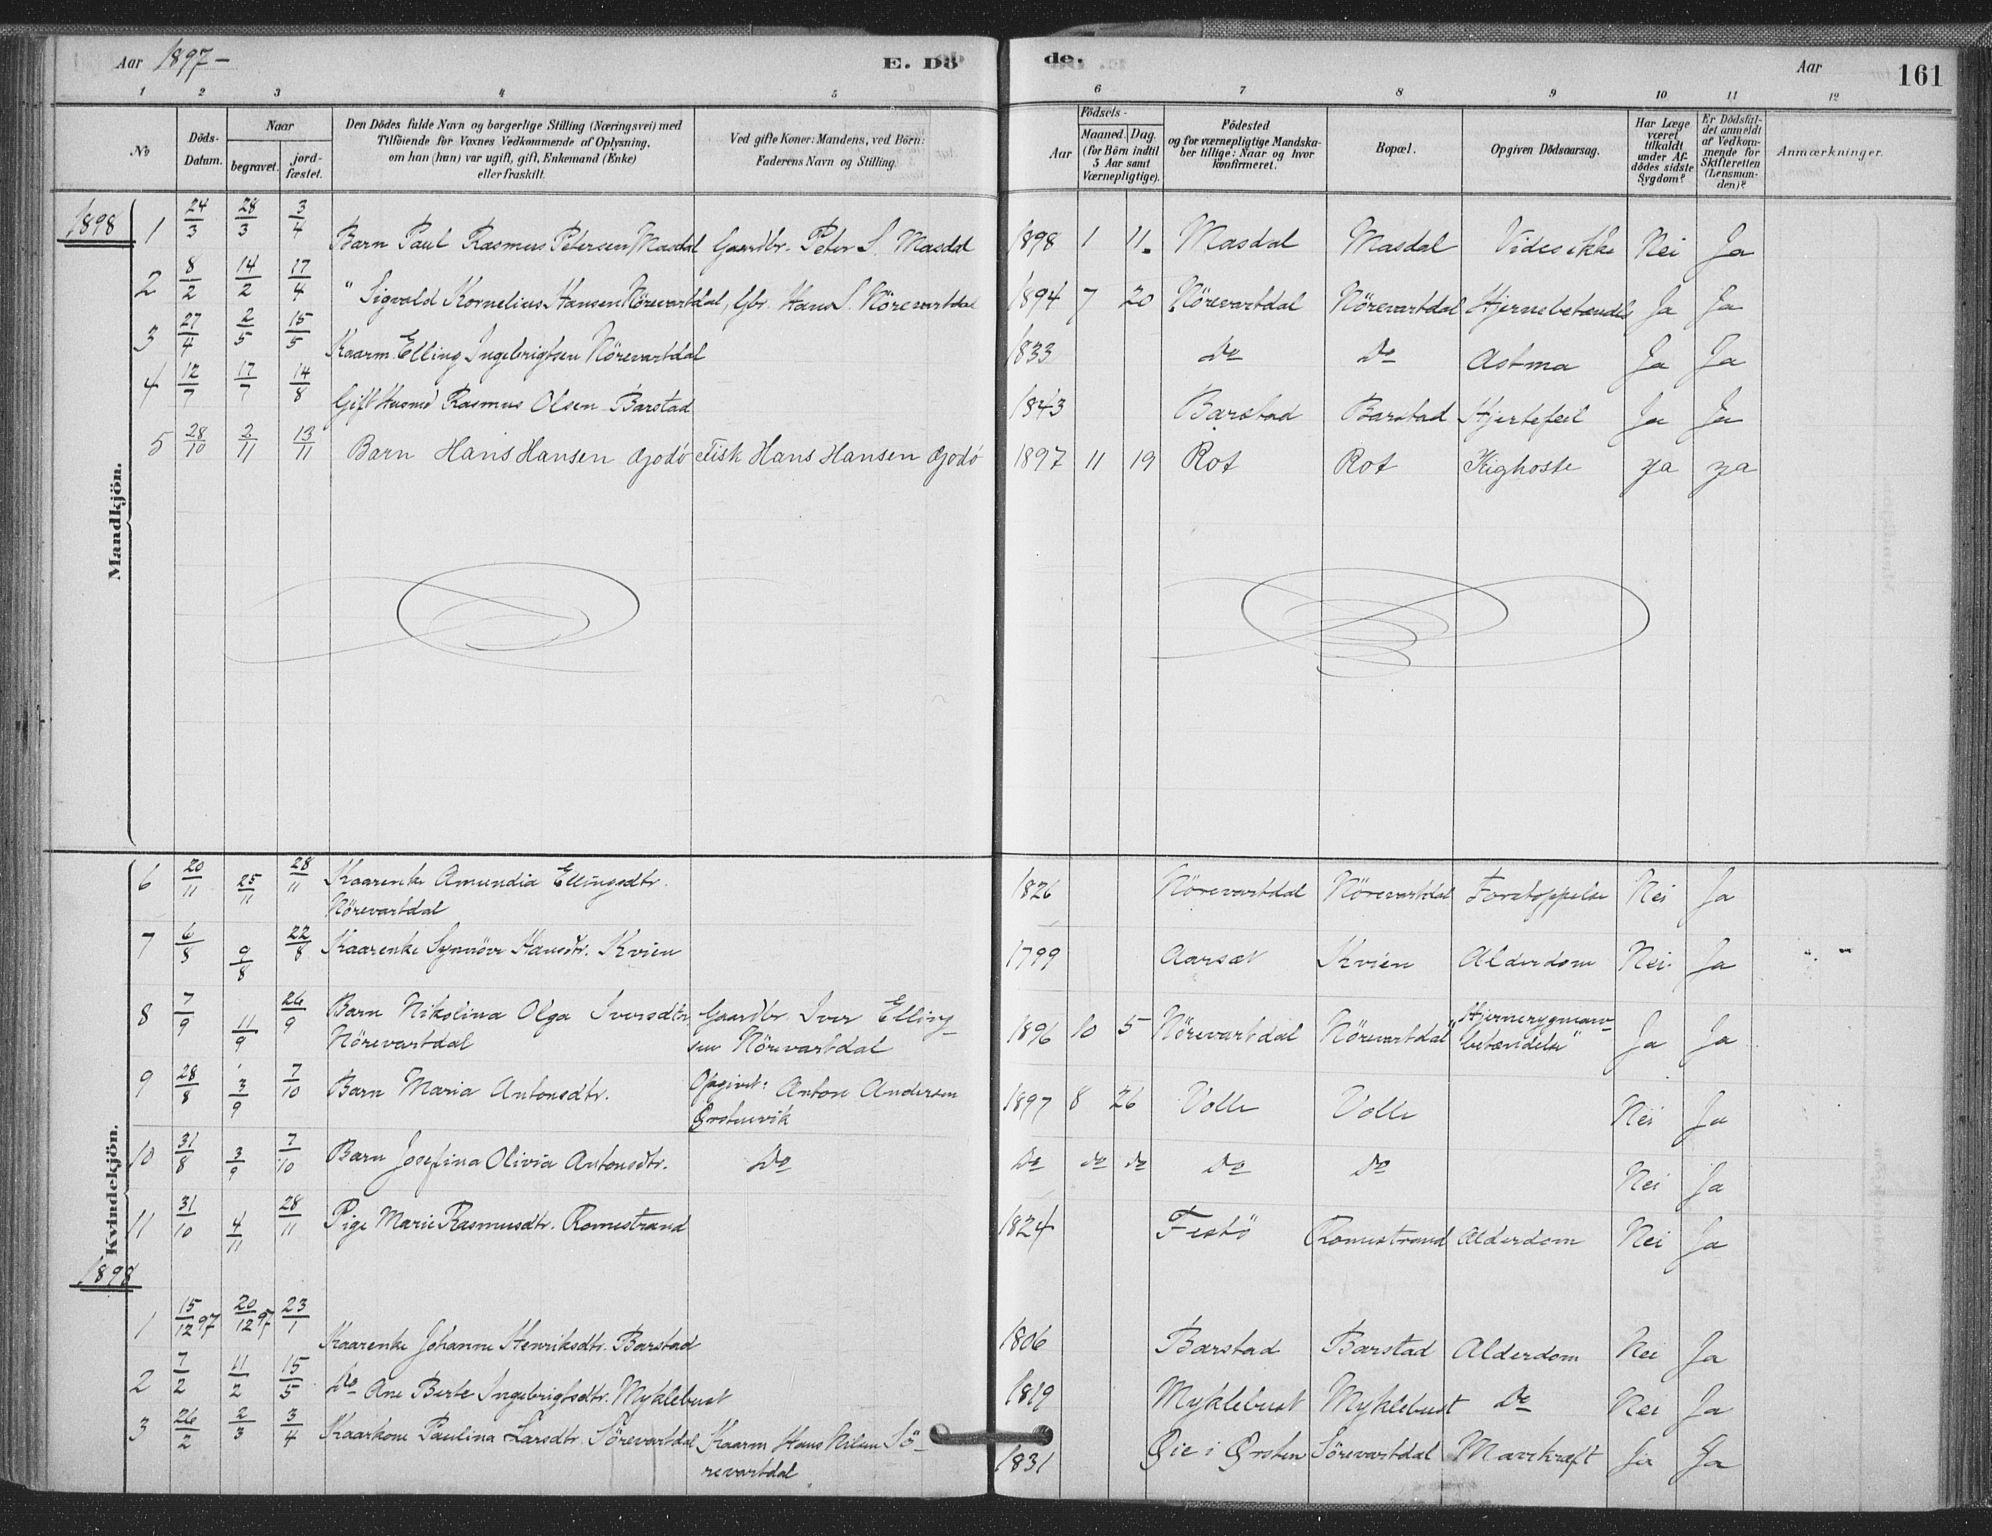 Aar 1897 – E. Dö de. Aar 161
1 2 3 4 5 6 7 8 9 10 11 12
No Döds-Datum. Naar begravet. jord-fæstet. Den Dödes fulde Navn og borgerlige Stilling (Næringsvei) med Tilföiende for Voxnes Vedkommende af Oplysning, om han (hun) var ugift, gift, Enkemand (Enke) eller fraskilt. Ved gifte Koner: Mandens, ved Börn: Faderens Navn og Stilling. Födsels- Aar Maaned. Dag. (for Börn indtil 5 Aar samt Værnepligtige). Födested og for værnepligtige Mandskaber tillige: Naar og hvor konfirmeret. Bopæl. Opgiven Dödsaarsag. Har Læge været tilkaldt under Afdödes sidste Sygdom? Er Dödsfaldet anmeldt af Vedkommende for Skifteretten (Lensmanden)? Anmærkninger.
1898
Mandkjön.
1 24/3 28/3 3/4 Barn Paul Rasmus Petersen Masdal Gaardbr. Peter S. Masdal 1898 1 11. Masdal Masdal Vides ikke Nei Ja
2 8/2 14/2 17/4 " Sigvald Kornelius Hansen Nörevartdal, Gbr. Hans S. Nörevartdal 1894 7 20 Nörevartdal Nörevartdal Hjernebetændelse Ja Ja
3 27/4 2/5 15/5 Kaarm. Elling Ingebrigtsen Nörevartdal 1833 Do Do Astma Ja Ja
4 12/7 17/7 14/8 Gift Husmd Rasmus Olsen Barstad 1843 Barstad Barstad Hjertefeil Ja Ja
5 28/10 2/11 13/11 Barn Hans Hansen Godö Fisk Hans Hansen Godö 1897 11 19 Rot Rot Kighoste ya ya
Kvindekjön.
6 20/11 25/11 28/11 Kaarenke Amundia Ellingsdtr. 1826 Nörevartdal Nörevartdal Forstoppelse Nei Ja
Nörevartdal
7 6/8 9/8 22/8 Kaarenke Synnöve Hansdtr. Kvien 1799 Aarsæt Kvien Alderdom Nei Ja
8 7/9 11/9 26/9 Barn Nikolina Olga Iversdtr Gaardbr. Iver Elling- 1896 10 5 Nörevartdal Nörevartdal "Hjernerygmarv- Ja Ja
Nörevartdal sen Nörevartdal betændelse"
9 28/8 3/9 7/10 Barn Maria Antonsdtr. Opgivet: Anton Andersen 1897 8 26 Volle Volle Nei Ja
Ørstenvik
10 31/8 3/9 7/10 Barn Josefina Olivia Antonsdtr. Do Do do do Do Do Nei Ja
11 31/10 4/11 28/11 Pige Marie Rasmusdtr. Romestrand 1824 Festö Romestrand Alderdom Nei Ja
1898
1 15/12 97 20/12 97 23/1 Kaarenke Johanne Henriksdtr. Barstad 1806 Barstad Barstad Alderdom Nei Ja
2 7/2 11/2 15/5 Do Ane Berte Ingebrigtsdtr. Myklebust 1819 Myklebust Myklebust Do Nei Ja
3 26/2 2/3 3/4 Kaarkone Paulina Larsdtr. Sörevartdal Kaarm Hans Nilsen Sö- 1831 Øie i Ørsten Sörevartdal Mavekræft Ja Ja
revartdal